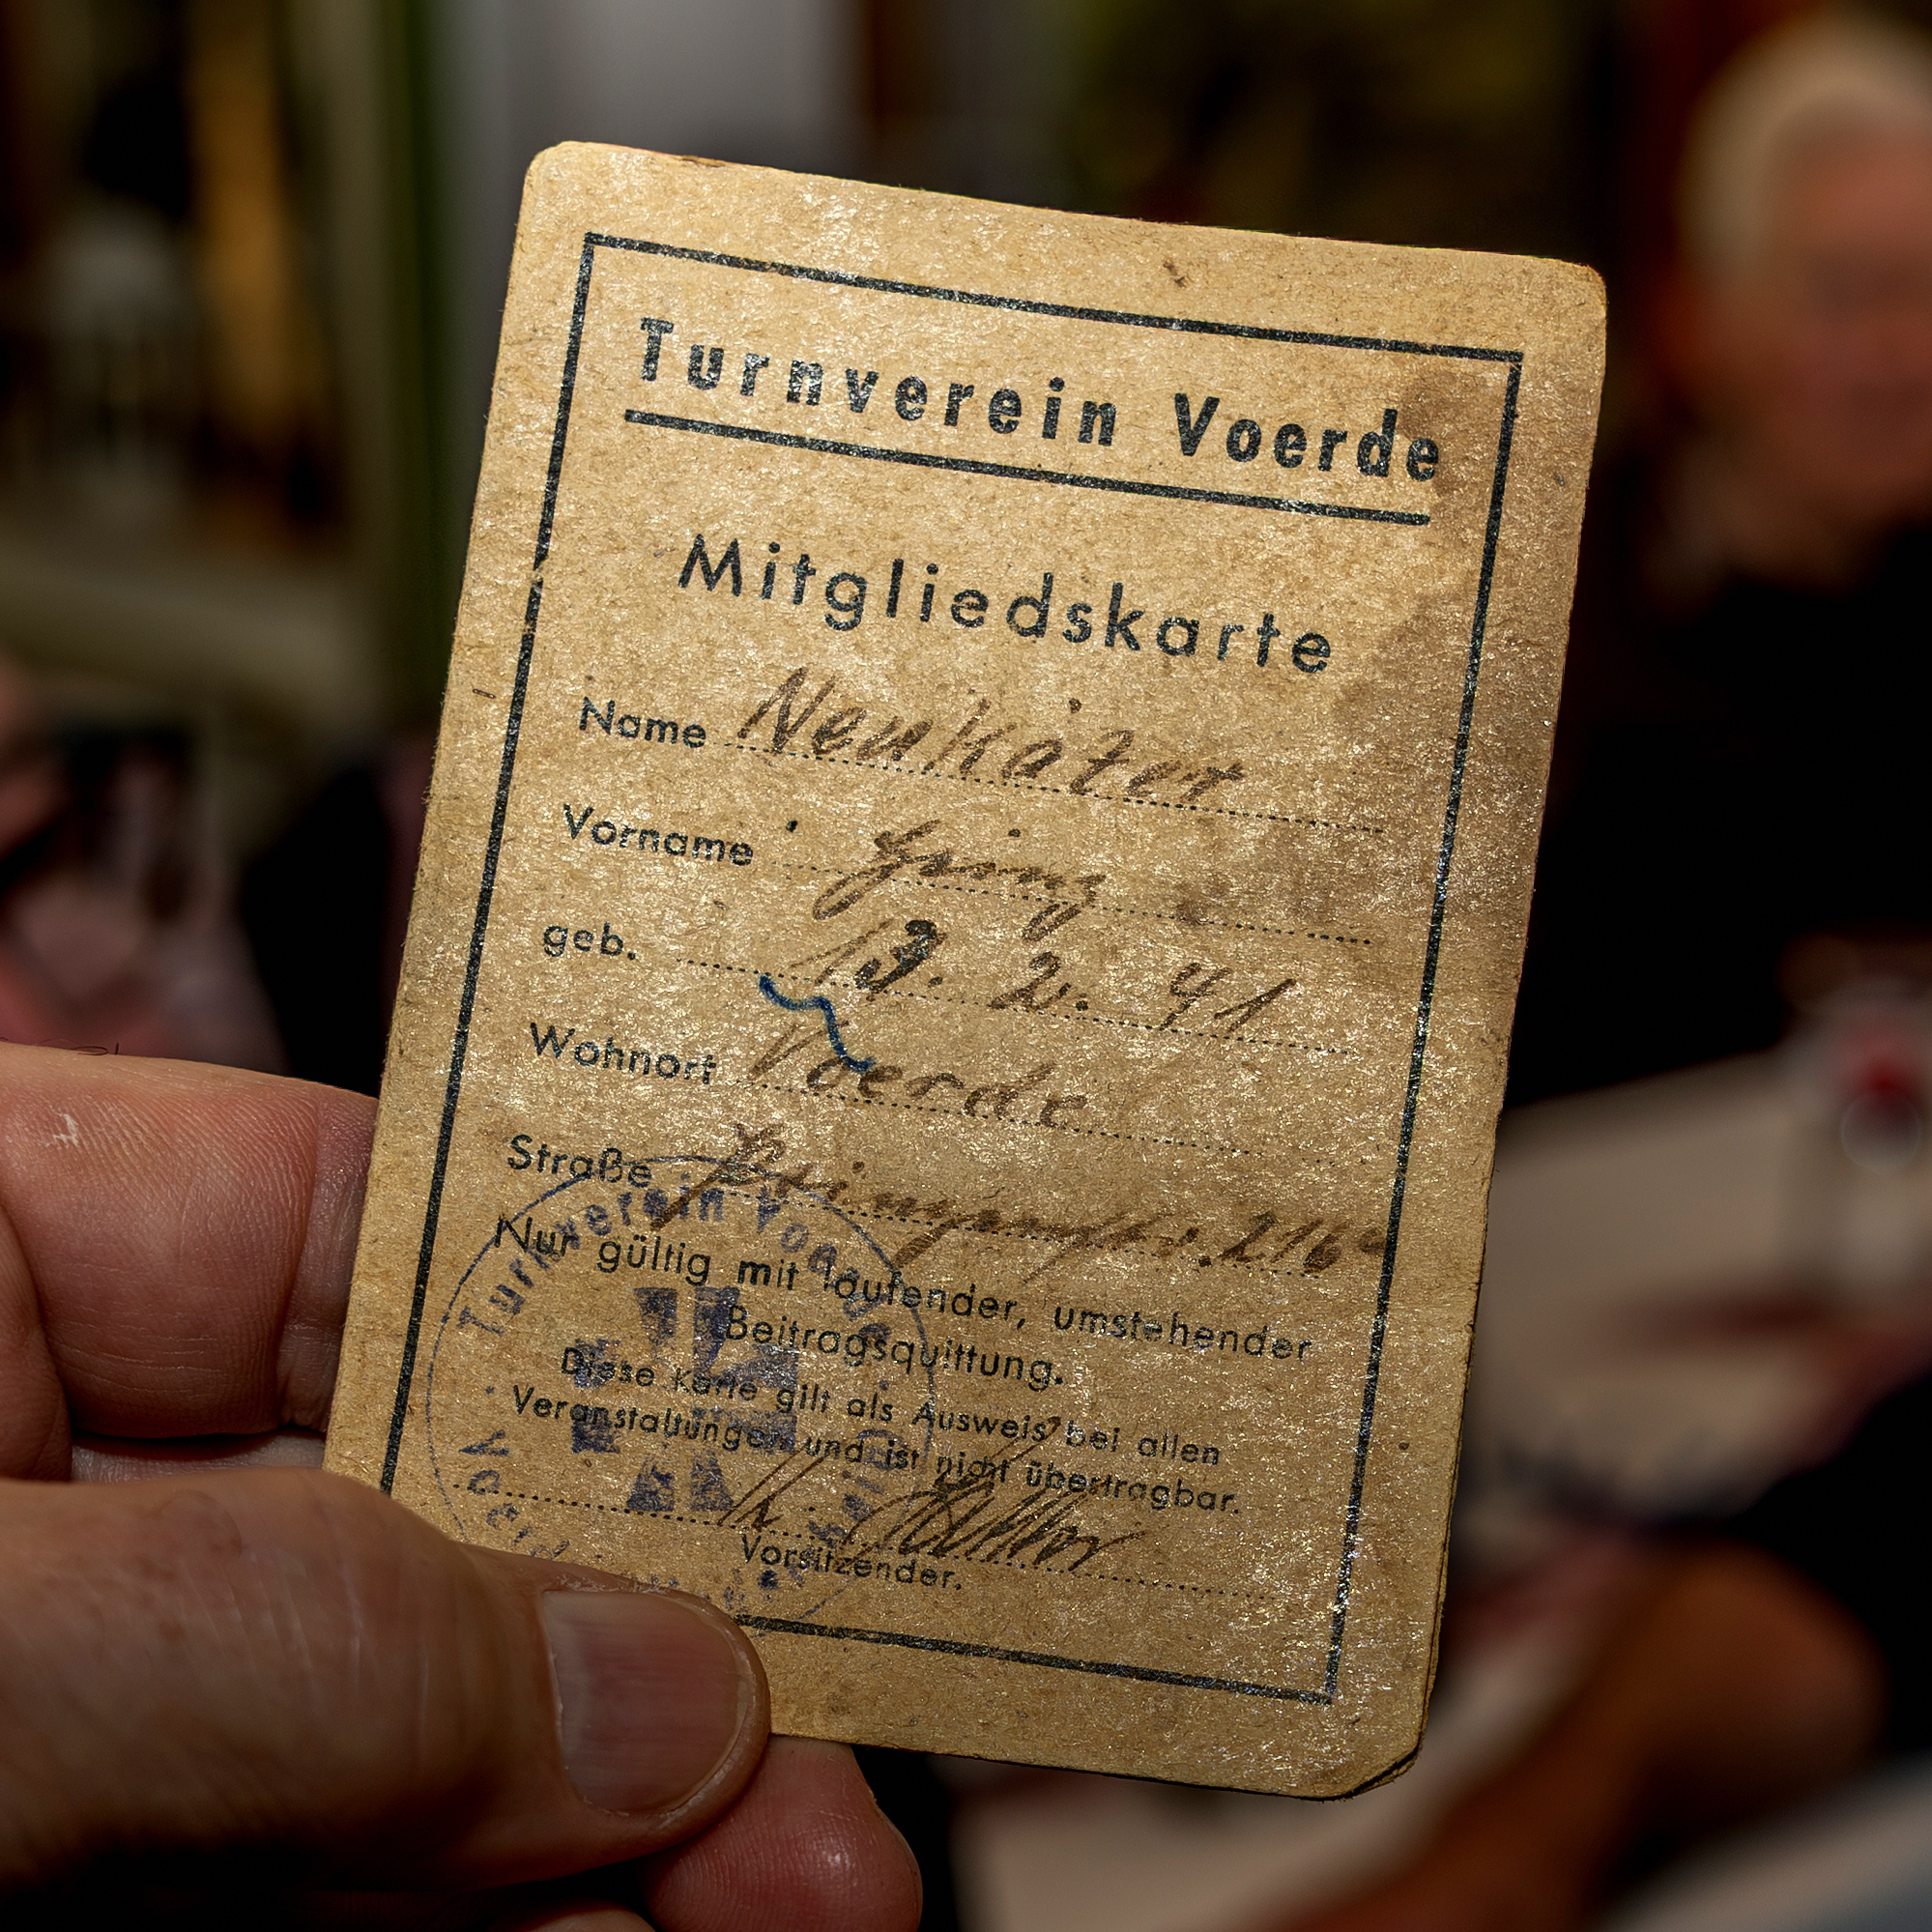 Turnverein Voerde
Mitgliedskarte
Name Neukäter
Vorname Heinz
geb. 13. 2. 41
Wohnort Voerde
Straße
Nur gültig mit laufender, umstehender
Beitragsquittung.
Diese Karte gilt als Ausweis bei allen
Veranstaltungen und ist nicht übertragbar.
Vorsitzender.
Turnverein Voerde